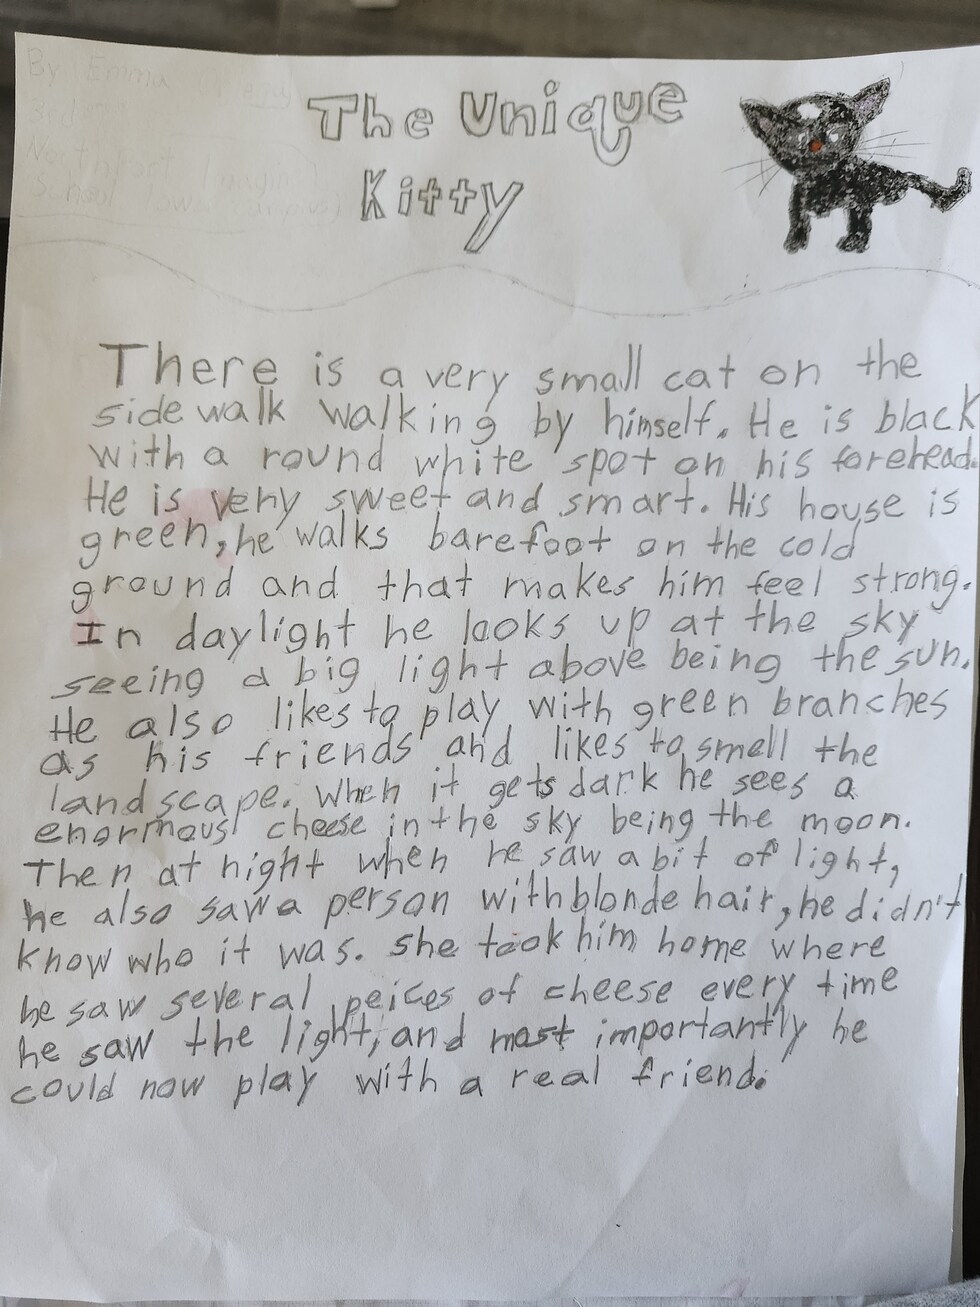 By Emma
The Unique
Kitty
There is a very small cat on the
sidewalk walking by himself. He is black
with a round white spot on his forehead.
He is very sweet and smart. His house is
green, he walks barefoot on the cold
ground and that makes him feel strong.
In daylight he looks up at the sky
seeing a big light above being the sun.
He also likes to play with green branches
as his friends and likes to smell the
landscape. When it gets dark he sees a
enormous cheese in the sky being the moon.
Then at night when he saw a bit of light,
he also saw a person with blonde hair, he didn't
know who it was. She took him home where
he saw several peices of cheese every time
he saw the light, and most importantly he
could now play with a real friend.